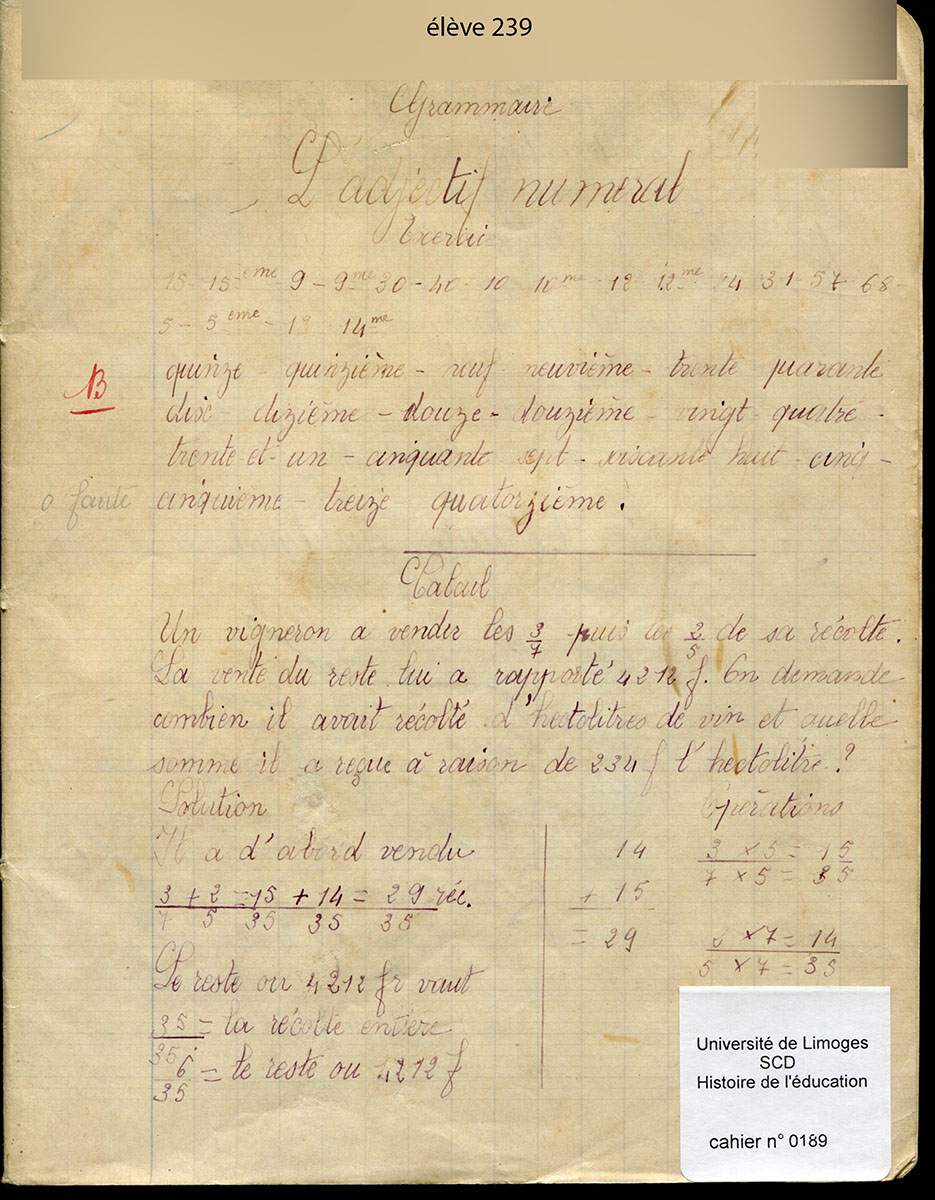 élève 239
Grammaire
L'adjectif numéral
Exercice
15 - 15ème 9 - 9me 30 - 40 - 10 10me 12 12me 24 31 - 57 68 -
5 - 5ème - 13 14me
quinze - quinzième - neuf neuvième - trente quarante
B
dix dizième - douze - douzième - vingt quatre -
trente et un - cinquante sept - soiscante huit - cinq -
0 faute
cinquième - treize quatorzième.
Calcul
Un vigneron a vendu les 3/7 puis les 2/5 de sa récolte.
La vente du reste lui a rapporté 4212 f. On demande
combien il avait récolté d'hectolitres de vin et quelle
somme il a reçue à raison de 234 f l'hectolitre ?
Solution
Opérations
Il a d'abord vendu
3/7 + 2/5 = 15/35 + 14/35 = 29/35 réc.
14
+ 15
= 29
3 × 5 = 15
7 × 5 = 35
2 × 7 = 14
5 × 7 = 35
Le reste ou 4212 fr vaut
35/35 = la récolte entière
6/35 = le reste ou 4212 f
Université de Limoges
SCD
Histoire de l'éducation
cahier n° 0189